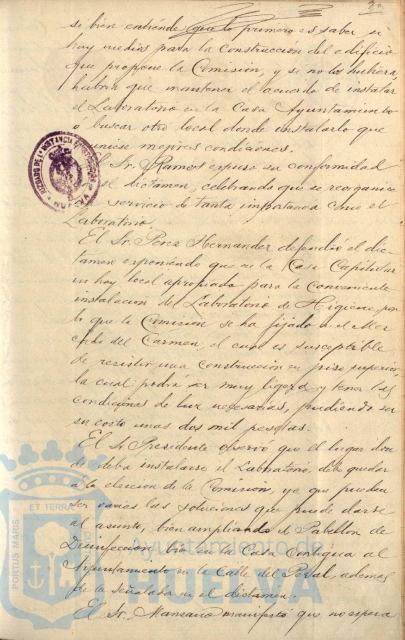 se bien entiende que lo primero es saber si
hay medios para la construccion del edificio
que propone la Comisión, y si no los hubiera,
habra que mantener el acuerdo de instalar
el Laboratorio en la Casa Ayuntamiento
ó buscar otro local donde instalarlo que
reuniese mejores condiciones.
El Sr. Ramos expuso su conformidad
el dictamen, celebrando que se reorganice
servicio de tanta importancia como el
Laboratorio.
El Sr. Perez Hernandez defendió el dic-
tamen exponiendo que en la Casa Capitular
no hay local apropiado para la conveniente
instalación del Laboratorio de Higiene, por
lo que la Comisión se ha fijado en el Mer-
cado del Carmen el cual es susceptible
de resistir una construccion en piso superior,
la cual podra ser muy ligera y tener las
condiciones de luz necesarias, pudiendo ser
su costo unas dos mil pesetas.
El Sr Presidente observó que el lugar don-
de deba instalarse el Laboratorio, debe quedar
a la eleccion de la Comisión, ya que pueden
ser varias las soluciones que puede darse
al asunto, bien ampliando el Pabellon de
Desinfeccion, bien en la Casa contigua al
Ayuntamiento en la Calle del Peral, ademas
de la señalada en el dictamen.
El Sr. Manzano manifestó que no espera
PORTUS MARIS ET TERRAE
Ayuntamiento de
HUELVA